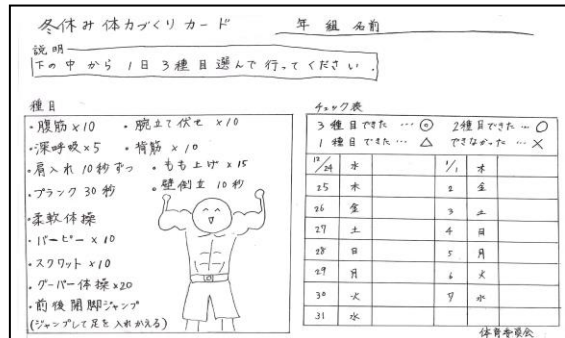 冬休み体力づくりカード　年　組　名前
説明
下の中から1日3種目選んで行ってください.
種目
・腹筋×10　・腕立て伏せ×10
・深呼吸×5　・背筋×10
・肩入れ10秒ずつ　・もも上げ×15
・プランク30秒　・壁倒立10秒
・柔軟体操
・バーピー×10
・スクワット×10
・グーパー体操×20
・前後開脚ジャンプ
(ジャンプして足を入れかえる)
チェック表
3種目できた…◎　2種目できた…○
1種目できた…△　できなかった…×
12/24　水　1/1　木
25　木　2　金
26　金　3　土
27　土　4　日
28　日　5　月
29　月　6　火
30　火　7　水
31　水
体育委員会